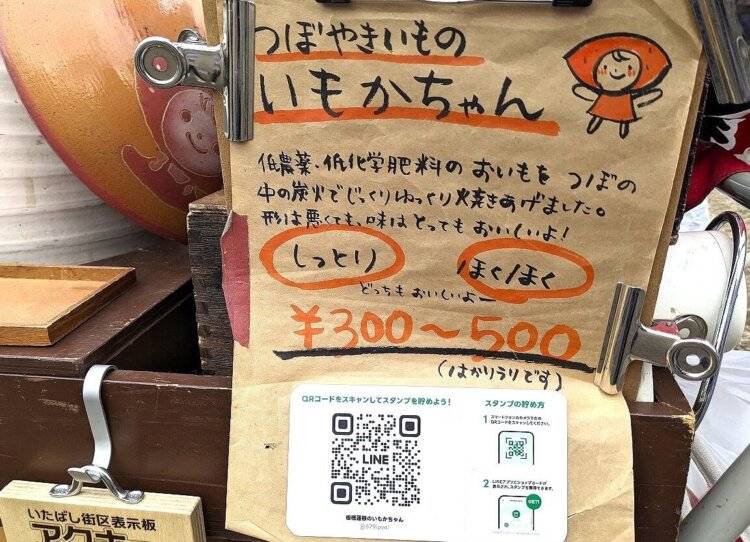 つぼやきいもの
いもかちゃん
低農薬、低化学肥料の おいもを つぼの
中の炭火でじっくりゆっくり火焼きあげました。
形は悪くても、味はとってもおいしいよ!
しっとり
ほくほく
どっちもおいしいよー
¥300〜500
(はかりうりです)
QRコードをスキャンしてスタンプを貯めよう!
LINE
板橋譲縁のいもかちゃん
スタンプの貯め方
1 スマートフォンのカメラで左の
QRコードをスキャンしてください。
2 LINEアプリにショップカードが
表示され、スタンプを獲得できます。
GET!
いたばし街区表示板